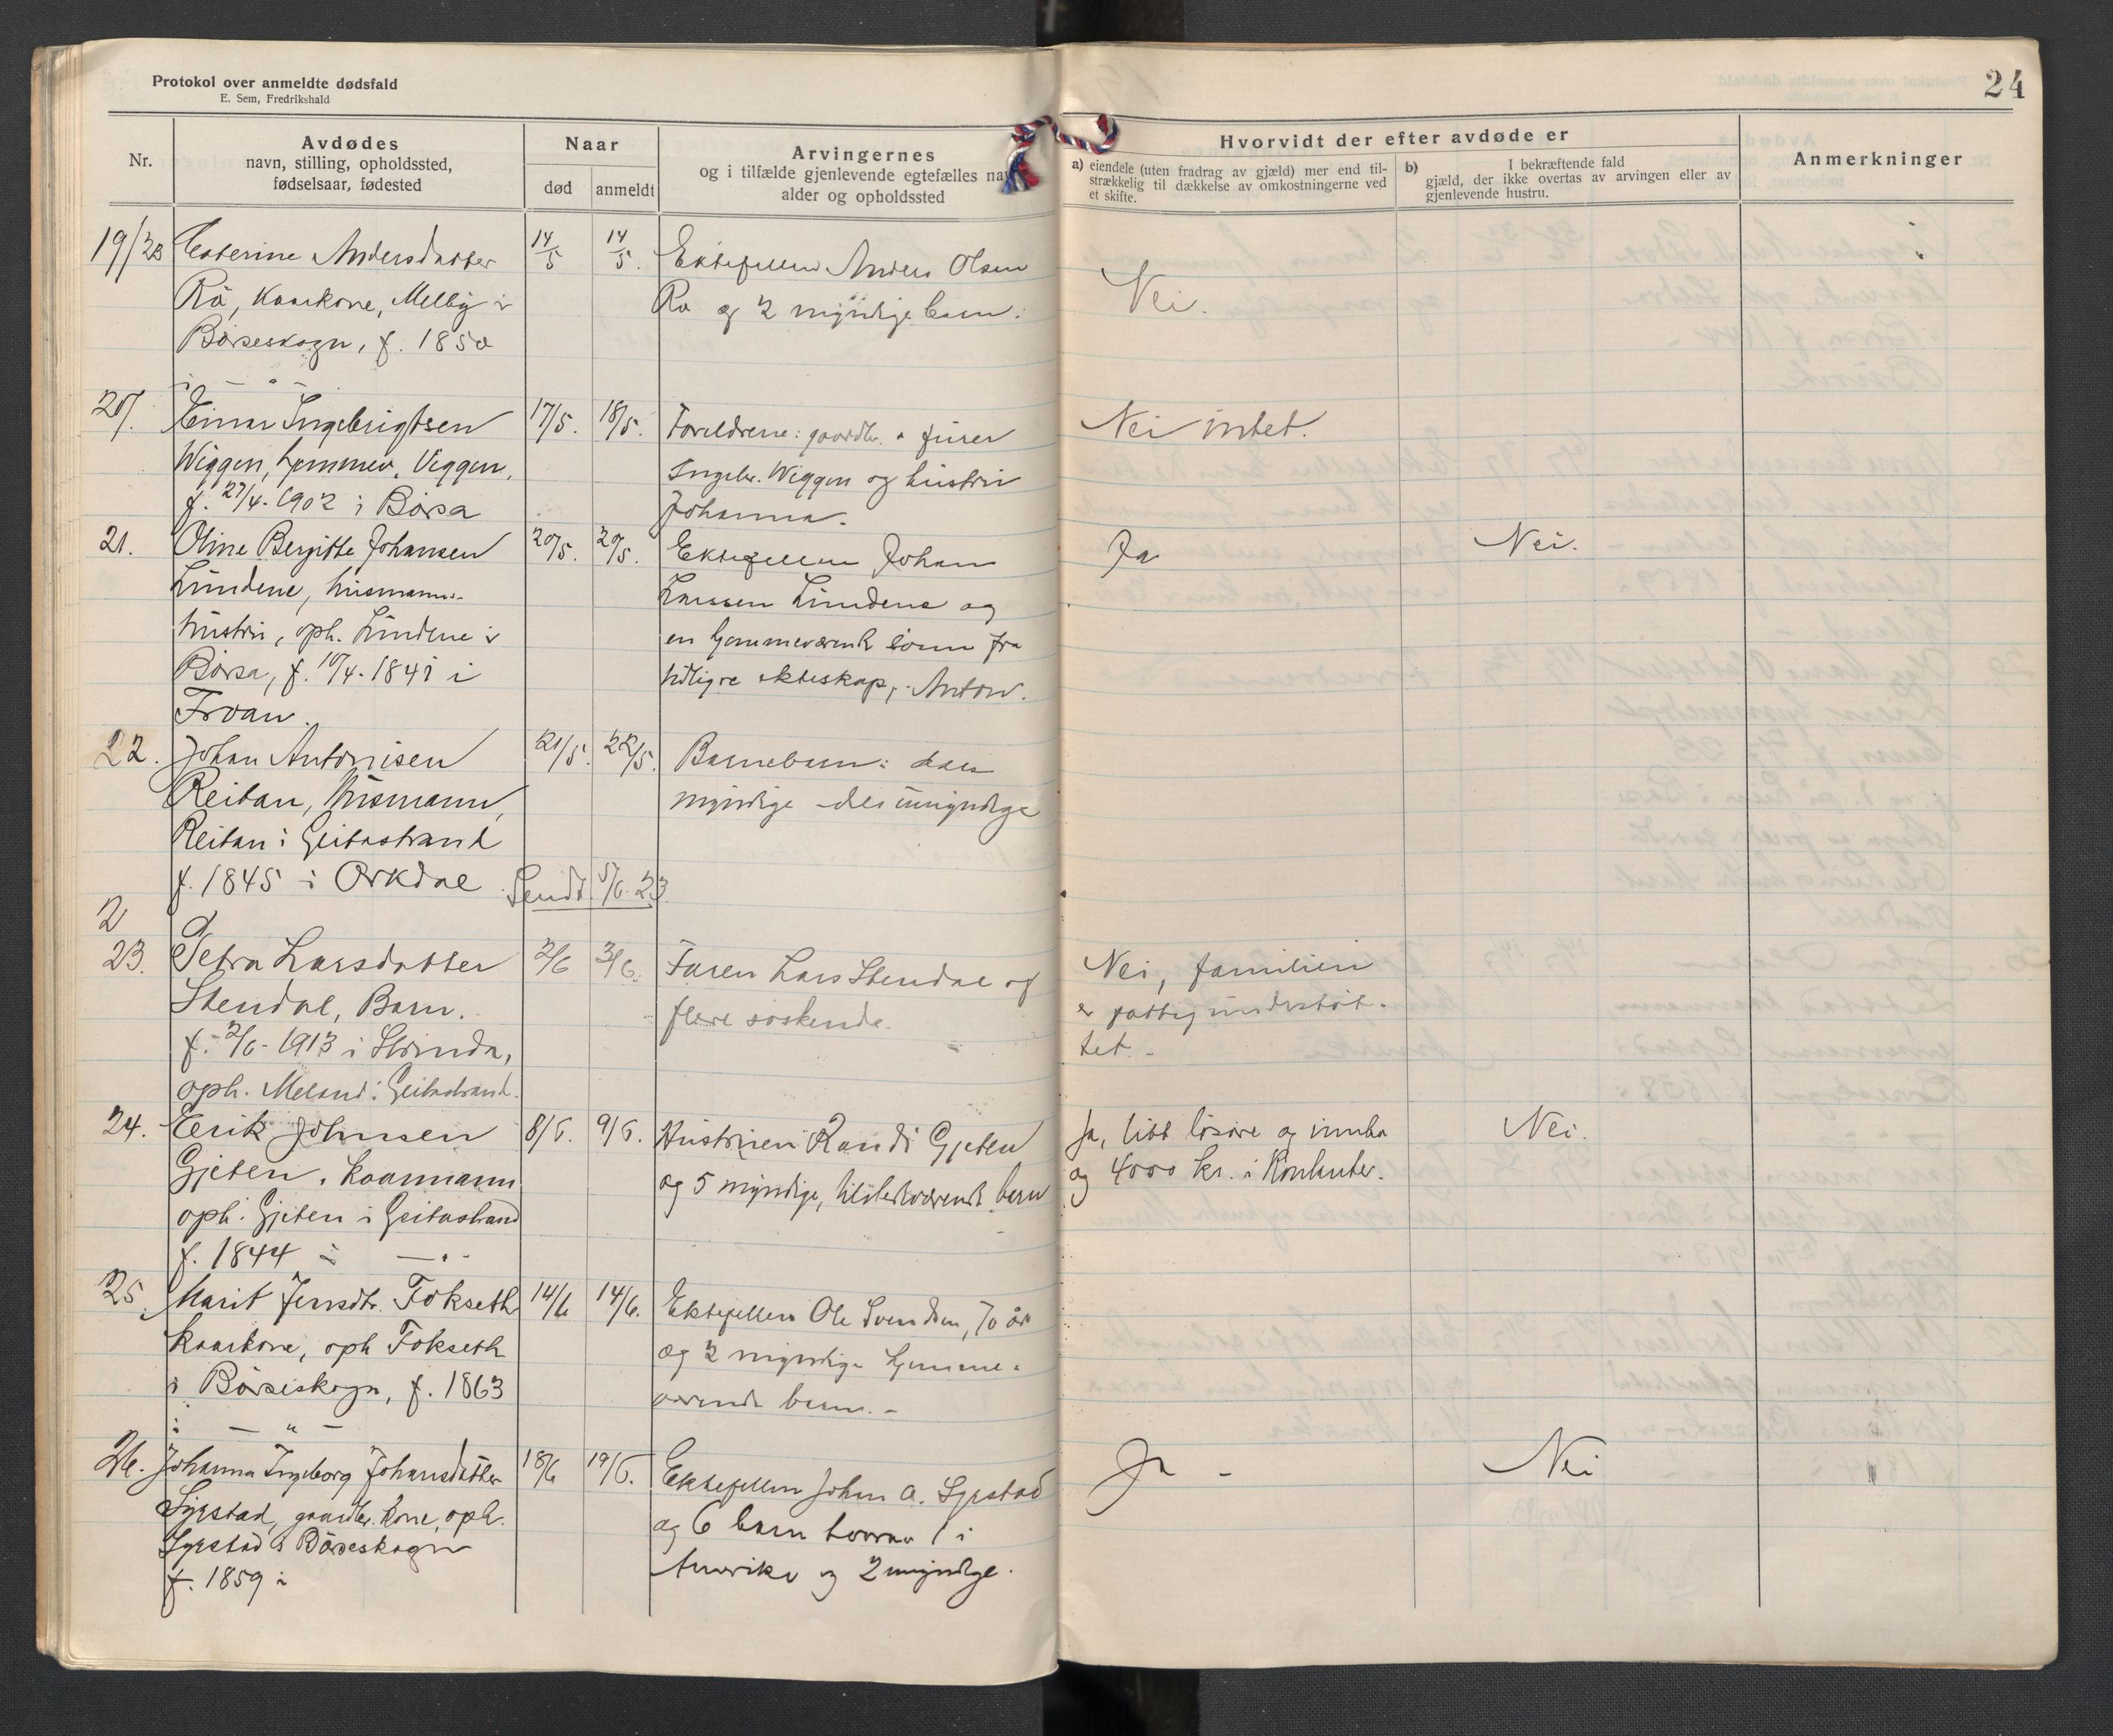 Protokol over anmeldte dødsfald
E. Sem, Fredrikshald
24
Nr.
Avdødes
navn, stilling, opholdssted,
fødselsaar, fødested
Naar
død
anmeldt
Arvingernes
og i tilfælde gjenlevende egtefælles nav
alder og opholdssted
Hvorvidt der efter avdøde er
a) eiendele (uten fradrag av gjæld) mer end til-
strækkelig til dækkelse av omkostningerne ved
et skifte.
b) I bekræftende fald
gjæld, der ikke overtas av arvingen eller av
gjenlevende hustru.
Anmerkninger
19/23 Andersdatter 14/5 14/5. Ektefellen Anders Olsen
Rö, Kaarkone, Melby i Ra og 2 myndige barn. Nei.
Börseskogn, f. 1850
i — " —
20/. Einar Ingebrigtsen 17/5. 18/5. Foreldrene: gaardbr. Nei intet.
Wiggen, hjemmev. Viggen, Ingebr. Wiggen og hustru
f. 27/4-1902 i Börsa Johanna.
21. Oline Bergitte Johansen 20/5. 20/5. Ektefellen Johan Ja Nei.
Lundene, husmanns- Larssen Lundene og
hustru, oph. Lundene i en hjemmeværende sönn fra
Börsa, f. 10/4-1841 i tidligre ekteskap, Anton.
Froan.
22. Johan Antonisen 21/5. 22/5. Barnebarn: dels
Reitan, Husmann, myndige - dels umyndige
Reitan i Geitastrand
f. 1845 i Orkdal Sendt 5/6. 23.
2
23. Petra Larsdatter 2/6 3/6. Faren Lars Stendal og Nei, familien
Stendal, Barn. flere söskende. er fattigunderstöt-
f. 2/6-1913 i Strinda, tet. -
oph. Meland i Geitastrand.
24. Erik Johnsen 8/6. 9/6. Hustruen Randi Gjeten Ja, litt lösöre og innbo Nei.
Gjeten, kaarmann og 5 myndige, tilstedeværende barn og 4000 kr. i Kontanter.
oph. Gjeten i Geitastrand
f. 1844 i — " -
25. Marit Jensdtr. Fokseth 14/6 14/6. Ektefellen Ole Svendsen, 70 år
kaarkone, oph Fokseth og 2 myndige hjemme-
i Börseskogn, f. 1863 værende barn. -
i — " —
26. Johanna Ingeborg Johansdatter 18/6 19/6. Ektefellen Johan A. Syrstad Ja - Nei
Syrstad, gaardbr. kone, oph. og 6 barn hvorav 1 i
Syrstad i Börseskogn Amerika og 2 myndige.
f. 1859 i